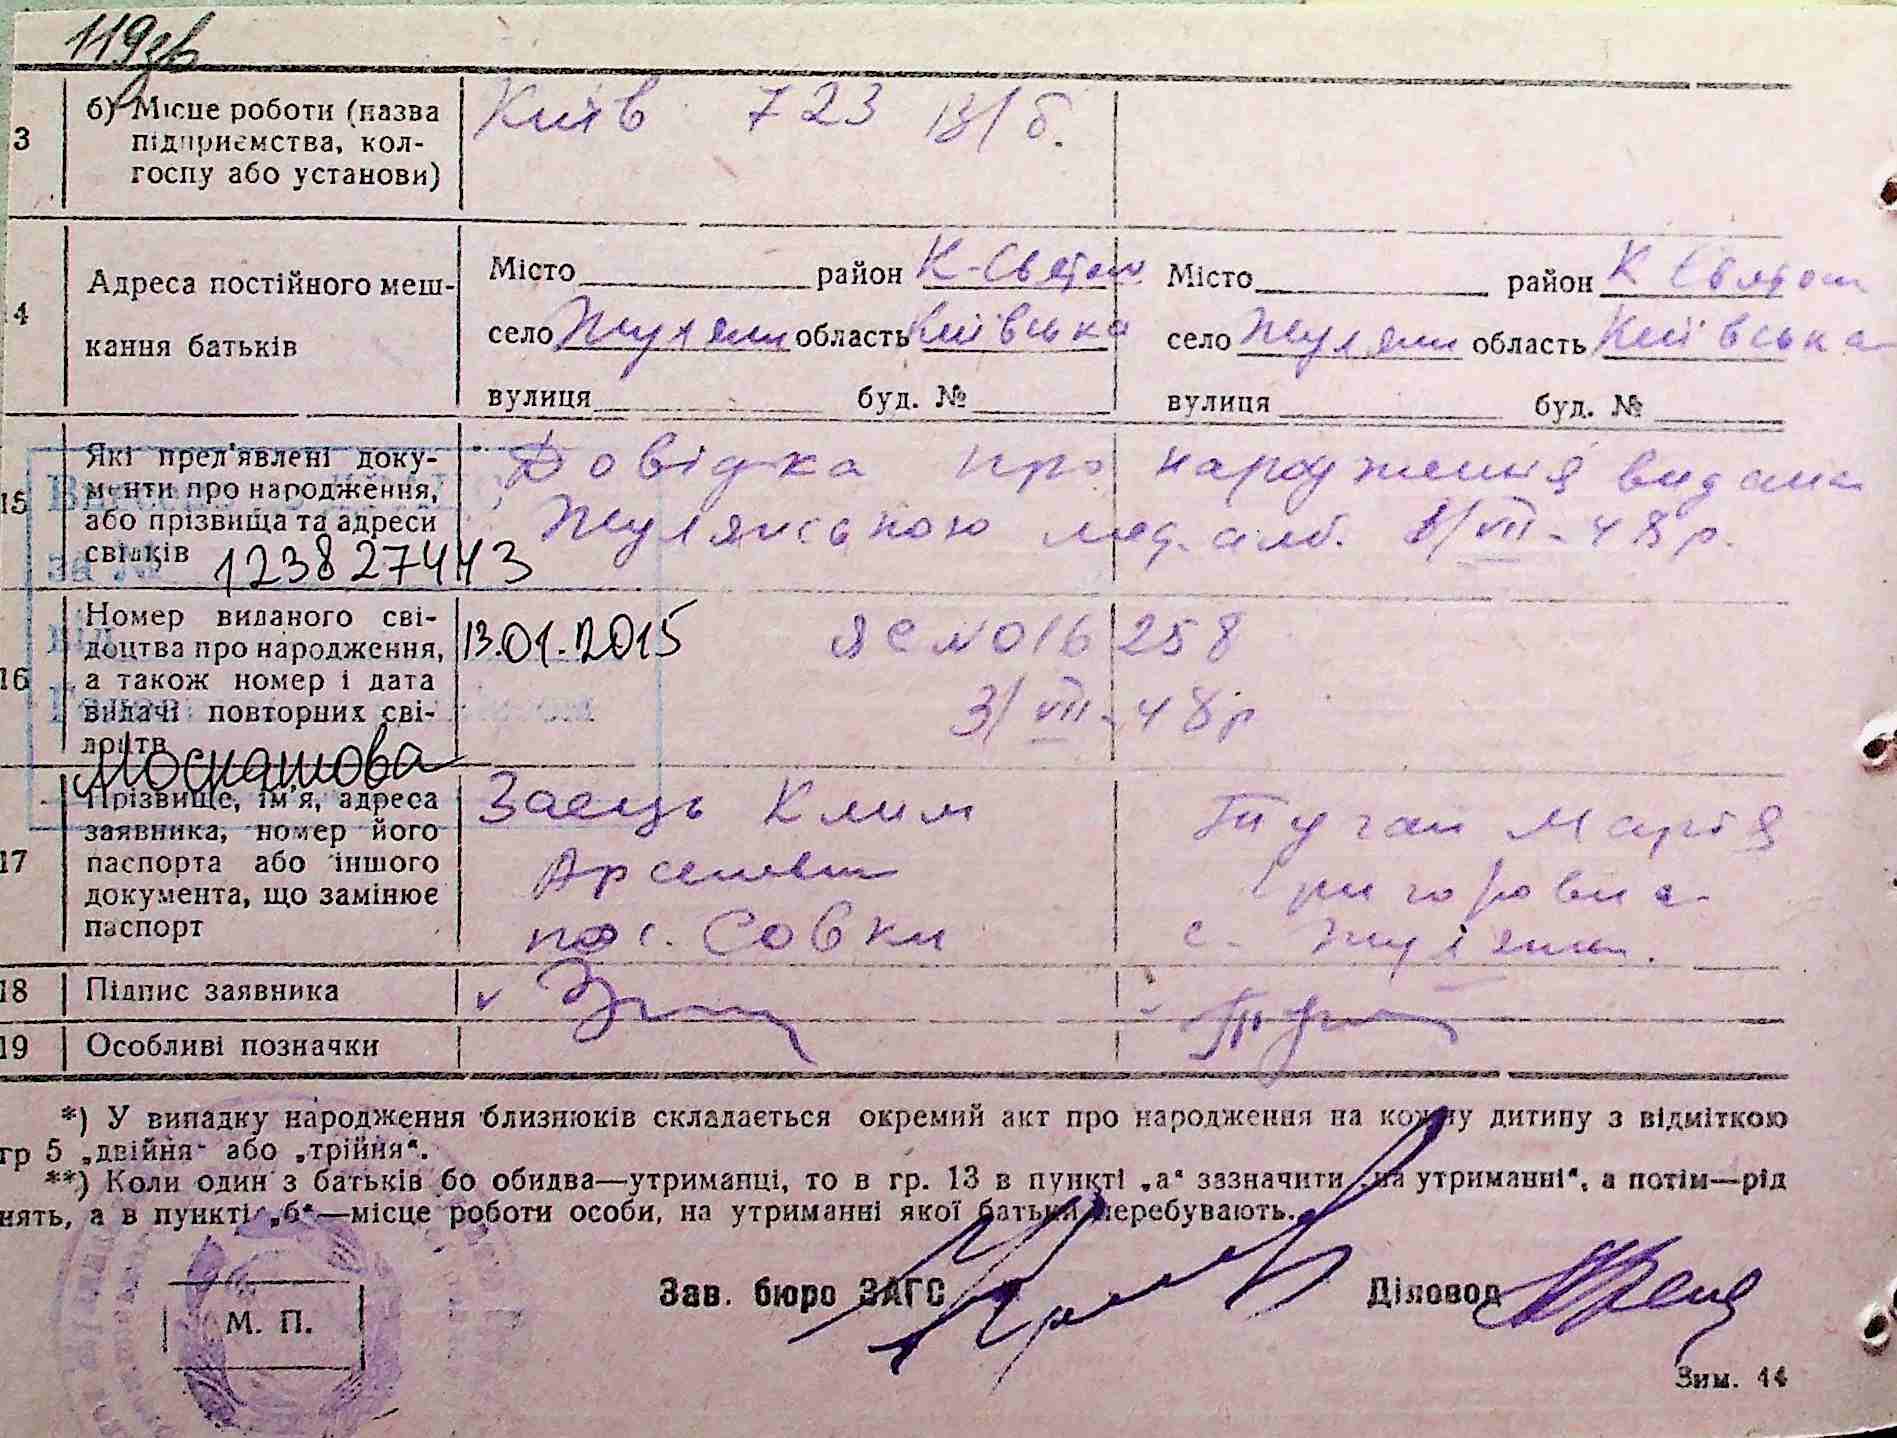 119зв
3 б) Місце роботи (назва підприємства, колгоспу або установи)
Київ 723 в/б.
4 Адреса постійного мешкання батьків
Місто район К-Святош
село Жуляни область Київська
вулиця буд. №
Місто район К Святош
село Жуляни область Київська
вулиця буд. №
15 Які пред'явлені документи про народження, або прізвища та адреси свідків
Довідка про народження видана
Жулянською мед. амб. 1/VII-48р.
за № 1238274443
16 Номер виданого свідоцтва про народження, а також номер і дата видачі повторних свідоцтв
13.01.2015
ЯС № 016258
3/VII-48р
17 Прізвище, ім'я, адреса заявника, номер його паспорта або іншого документа, що замінює паспорт
Заєць Клим
Арсеневич
пос. Совки
Тугай Марія
Григоровна
с. Жуляни.
18 Підпис заявника
19 Особливі позначки
*) У випадку народження близнюків складається окремий акт про народження на кожну дитину з відміткою
гр 5 „двійня“ або „трійня“.
**) Коли один з батьків бо обидва—утриманці, то в гр. 13 в пункті „а“ зазначити „на утриманні“, а потім—рід
нять, а в пункті „б“—місце роботи особи, на утриманні якої батьки перебувають.
М. П.
Зав. бюро ЗАГС
Діловод
Зим. 44